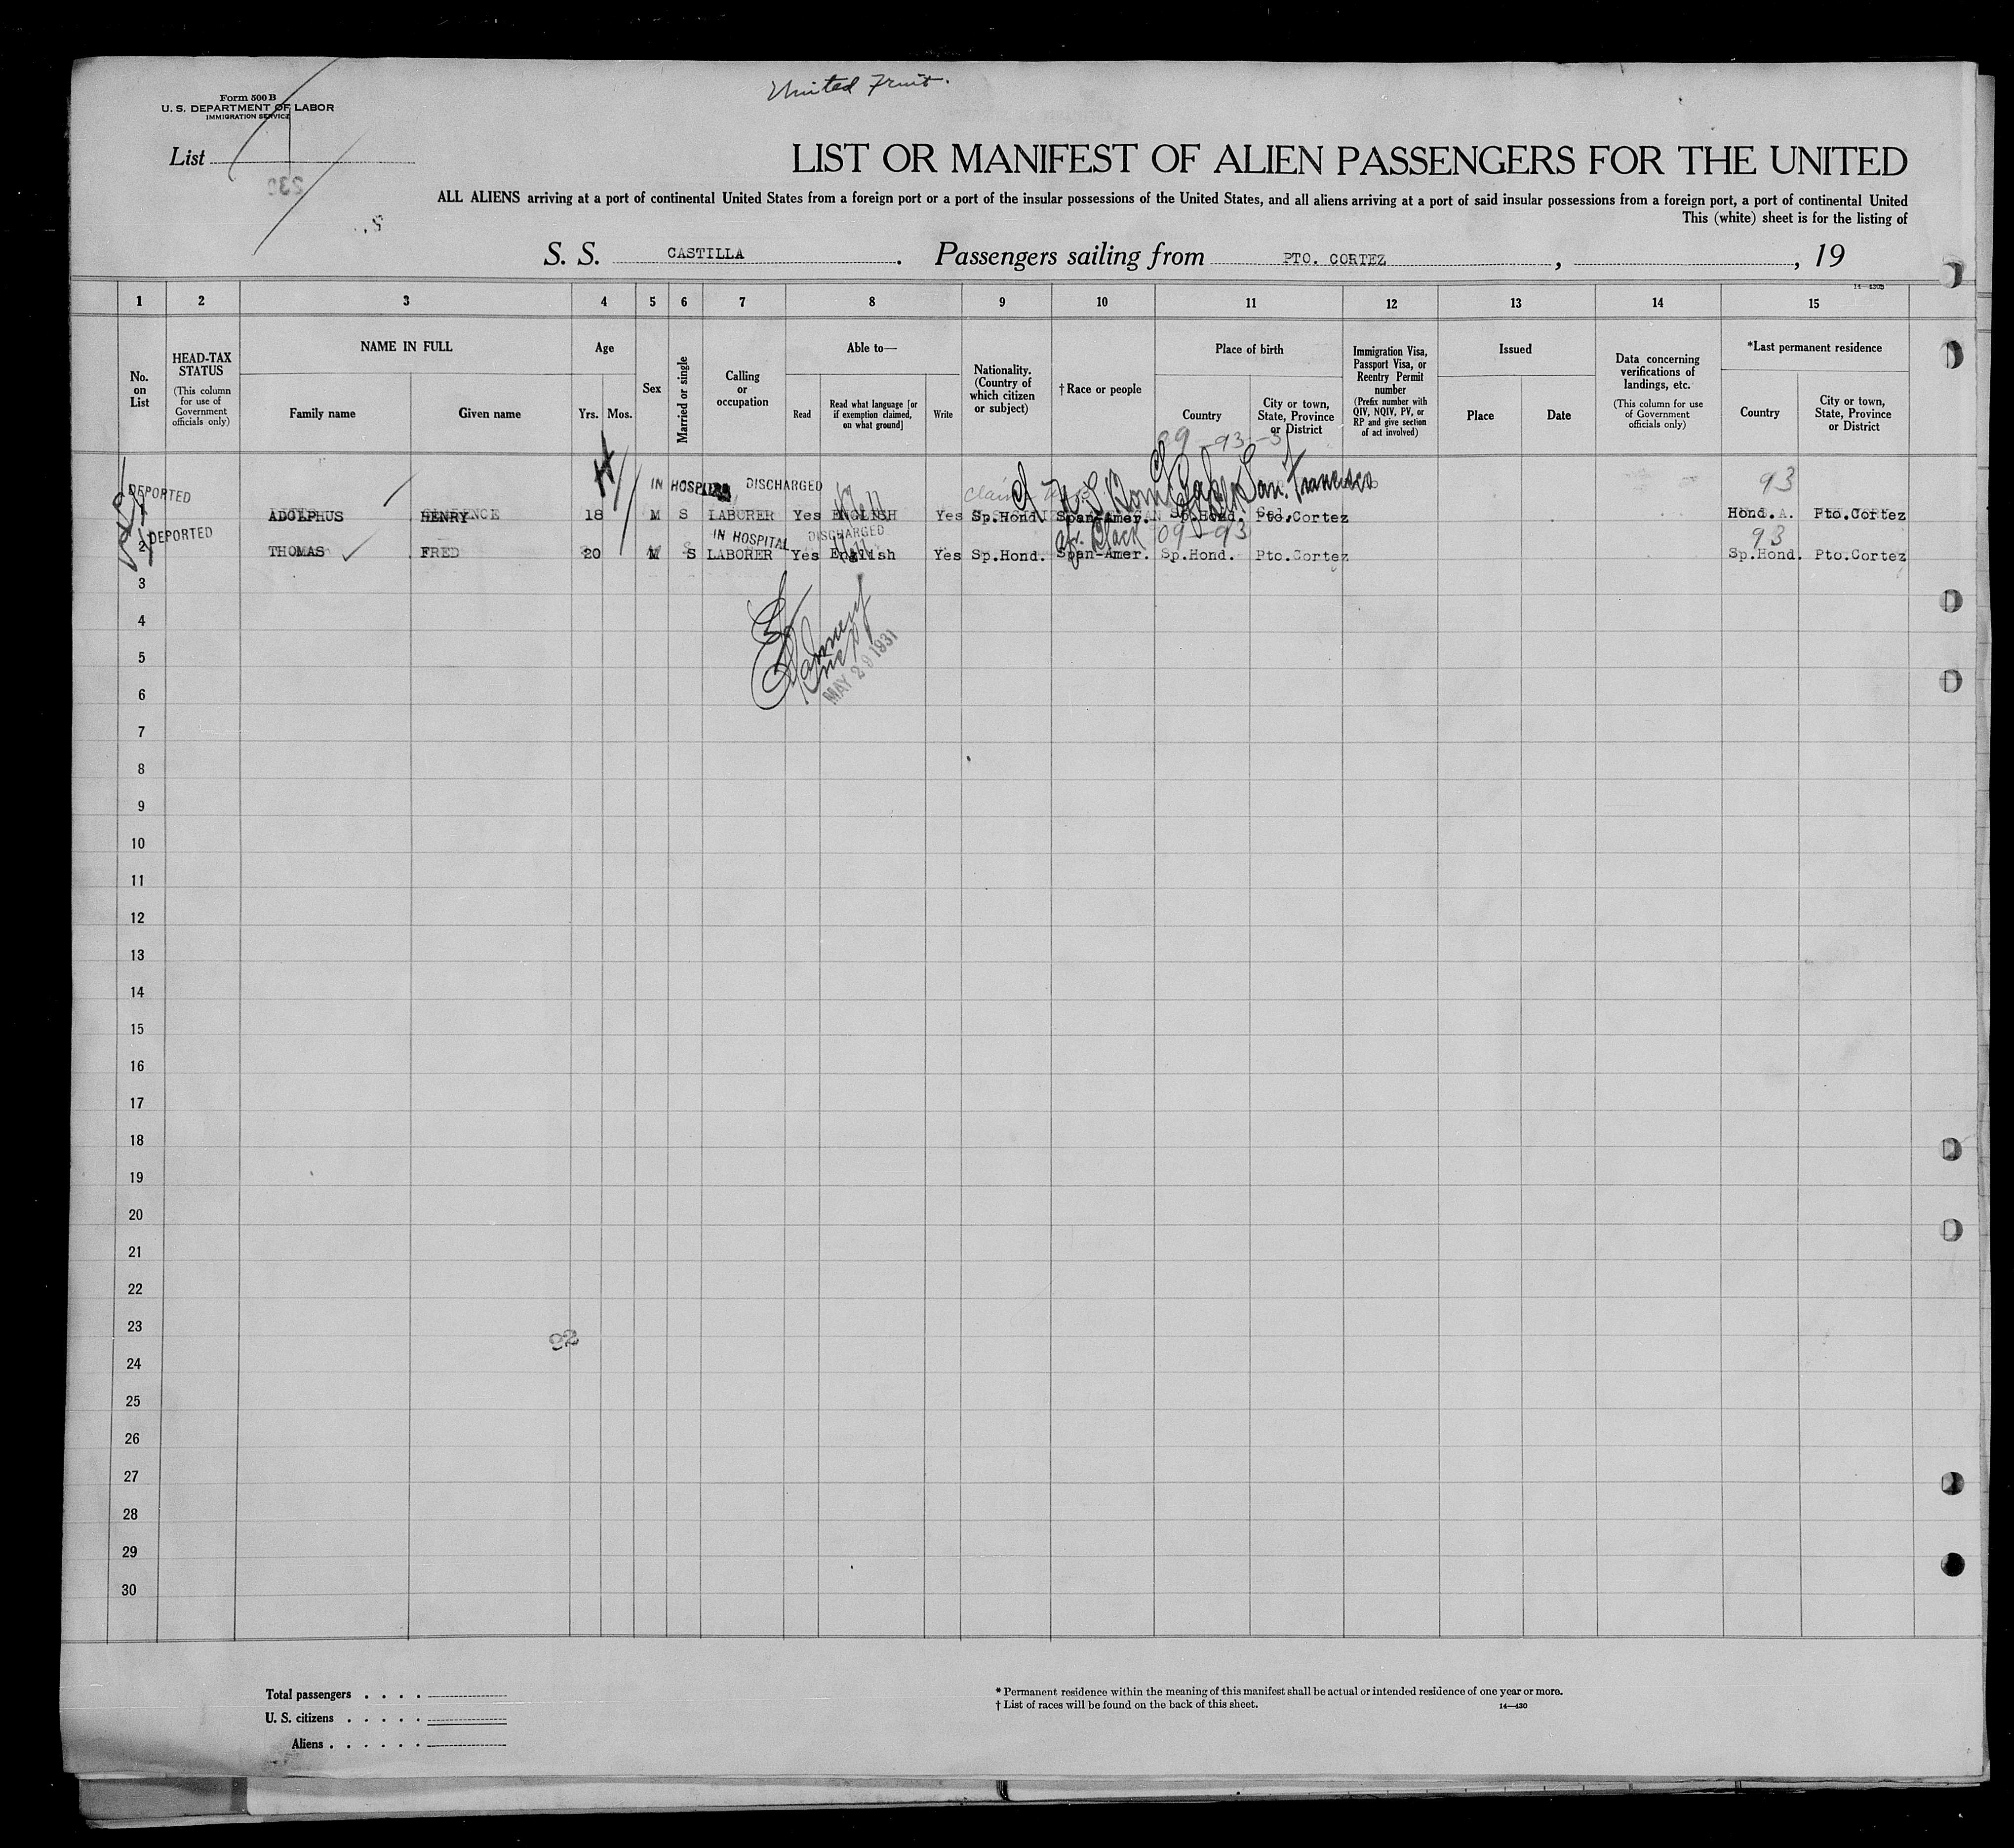 United Fruit.
Form 500 B
U. S. DEPARTMENT OF LABOR
IMMIGRATION SERVICE
List 1
230
LIST OR MANIFEST OF ALIEN PASSENGERS FOR THE UNITED
ALL ALIENS arriving at a port of continental United States from a foreign port or a port of the insular possessions of the United States, and all aliens arriving at a port of said insular possessions from a foreign port, a port of continental United
This (white) sheet is for the listing of
S. S. CASTILLA. Passengers sailing from PTO. CORTEZ, , 19
14—430B
1 2 3 4 5 6 7 8 9 10 11 12 13 14 15
No. on List
HEAD-TAX STATUS
(This column for use of Government officials only)
NAME IN FULL
Family name
Given name
Age
Yrs. Mos.
Sex
Married or single
Calling or occupation
Able to—
Read
Read what language [or if exemption claimed, on what ground]
Write
Nationality. (Country of which citizen or subject)
†Race or people
Place of birth
Country
City or town, State, Province or District
Immigration Visa, Passport Visa, or Reentry Permit number
(Prefix number with QIV, NQIV, PV, or RP and give section of act involved)
Issued
Place
Date
Data concerning verifications of landings, etc.
(This column for use of Government officials only)
*Last permanent residence
Country
City or town, State, Province or District
09-93-3
DEPORTED IN HOSPITAL DISCHARGED San Francisco 93
ADOLPHUS HENRY 18 M S LABORER Yes ENGLISH Yes Sp.Hond. Span-Amer. Sp.Hond. Pto.Cortez Hond. A. Pto.Cortez
DEPORTED IN HOSPITAL DISCHARGED Af. Black 09-93 93
2 THOMAS FRED 20 M S LABORER Yes English Yes Sp.Hond. Span-Amer. Sp.Hond. Pto.Cortez Sp.Hond. Pto.Cortez
3
4
5
MAY 29 1931
6
7
8
9
10
11
12
13
14
15
16
17
18
19
20
21
22
23
92
24
25
26
27
28
29
30
Total passengers . . . .
U. S. citizens . . . . .
Aliens . . . . . .
* Permanent residence within the meaning of this manifest shall be actual or intended residence of one year or more.
† List of races will be found on the back of this sheet.
14—430